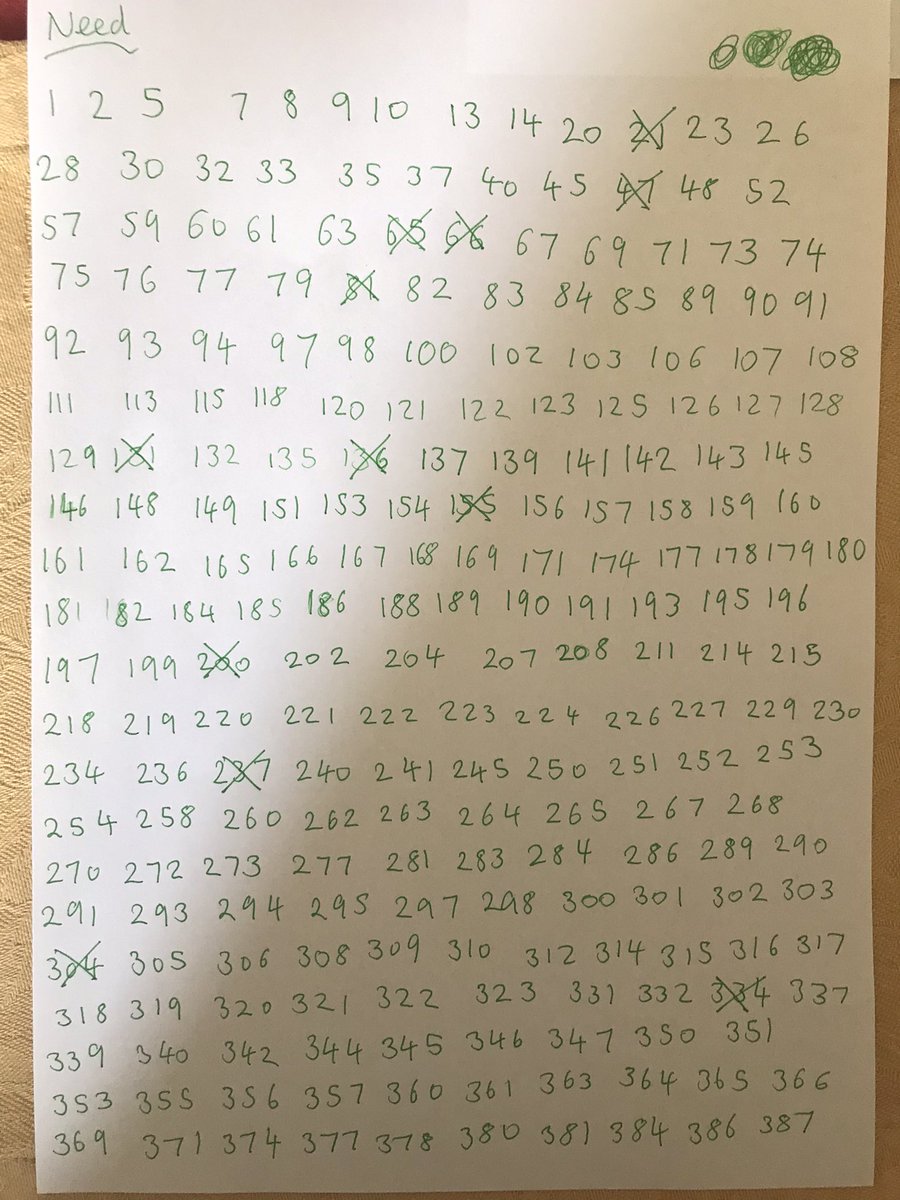 Need
1 2 5 7 8 9 10 13 14 20 21 23 26
28 30 32 33 35 37 40 45 47 48 52
57 59 60 61 63 65 66 67 69 71 73 74
75 76 77 79 81 82 83 84 85 89 90 91
92 93 94 97 98 100 102 103 106 107 108
111 113 115 118 120 121 122 123 125 126 127 128
129 131 132 135 136 137 139 141 142 143 145
146 148 149 151 153 154 155 156 157 158 159 160
161 162 165 166 167 168 169 171 174 177 178 179 180
181 182 184 185 186 188 189 190 191 193 195 196
197 199 200 202 204 207 208 211 214 215
218 219 220 221 222 223 224 226 227 229 230
234 236 237 240 241 245 250 251 252 253
254 258 260 262 263 264 265 267 268
270 272 273 277 281 283 284 286 289 290
291 293 294 295 297 298 300 301 302 303
304 305 306 308 309 310 312 314 315 316 317
318 319 320 321 322 323 331 332 334 337
339 340 342 344 345 346 347 350 351
353 355 356 357 360 361 363 364 365 366
369 371 374 377 378 380 381 384 386 387